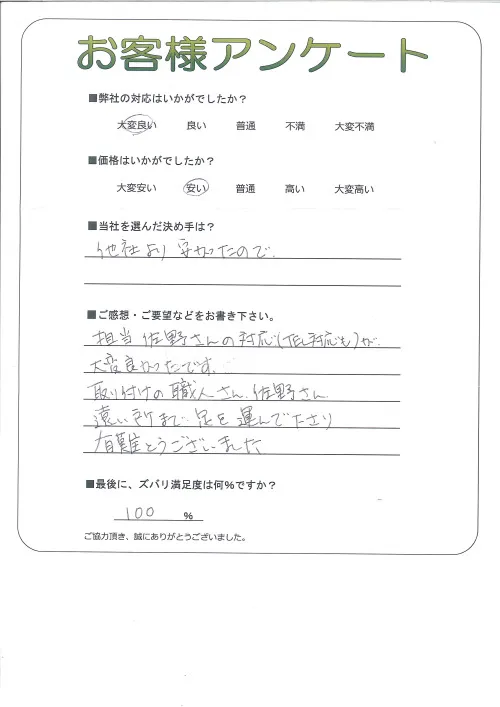 お客様アンケート
■弊社の対応はいかがでしたか？
大変良い 良い 普通 不満 大変不満
■価格はいかがでしたか？
大変安い 安い 普通 高い 大変高い
■当社を選んだ決め手は？
他社より安かったので.
■ご感想・ご要望などをお書き下さい。
担当佐野さんの対応(TEL対応も)が、
大変良かったです。
取り付けの職人さん、佐野さん
遠い所まで足を運んで下さり
有難とうございました
■最後に、ズバリ満足度は何％ですか？
100 ％
ご協力頂き、誠にありがとうございました。